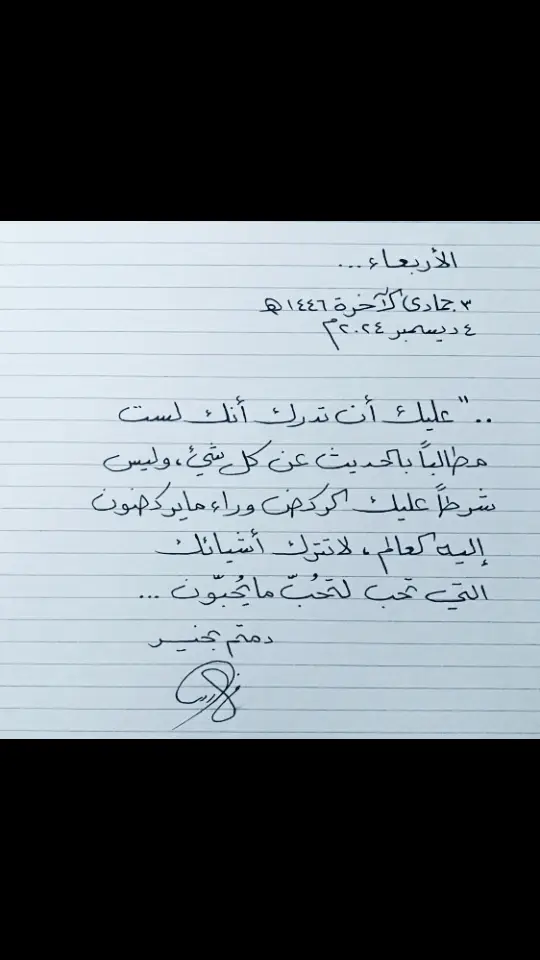 الأربعاء...
٣ جمادى الآخرة ١٤٤٦هـ
٤ ديسمبر ٢٠٢٤م
.." عليك أن تدرك أنك لست
مطالباً بالحديث عن كل شئ، وليس
شرطاً عليك الركض وراء مايركضون
إليه العالم، لاتترك أشيائك
التي تحب لتحُبّ مايُحبّون ...
دمتم بخير